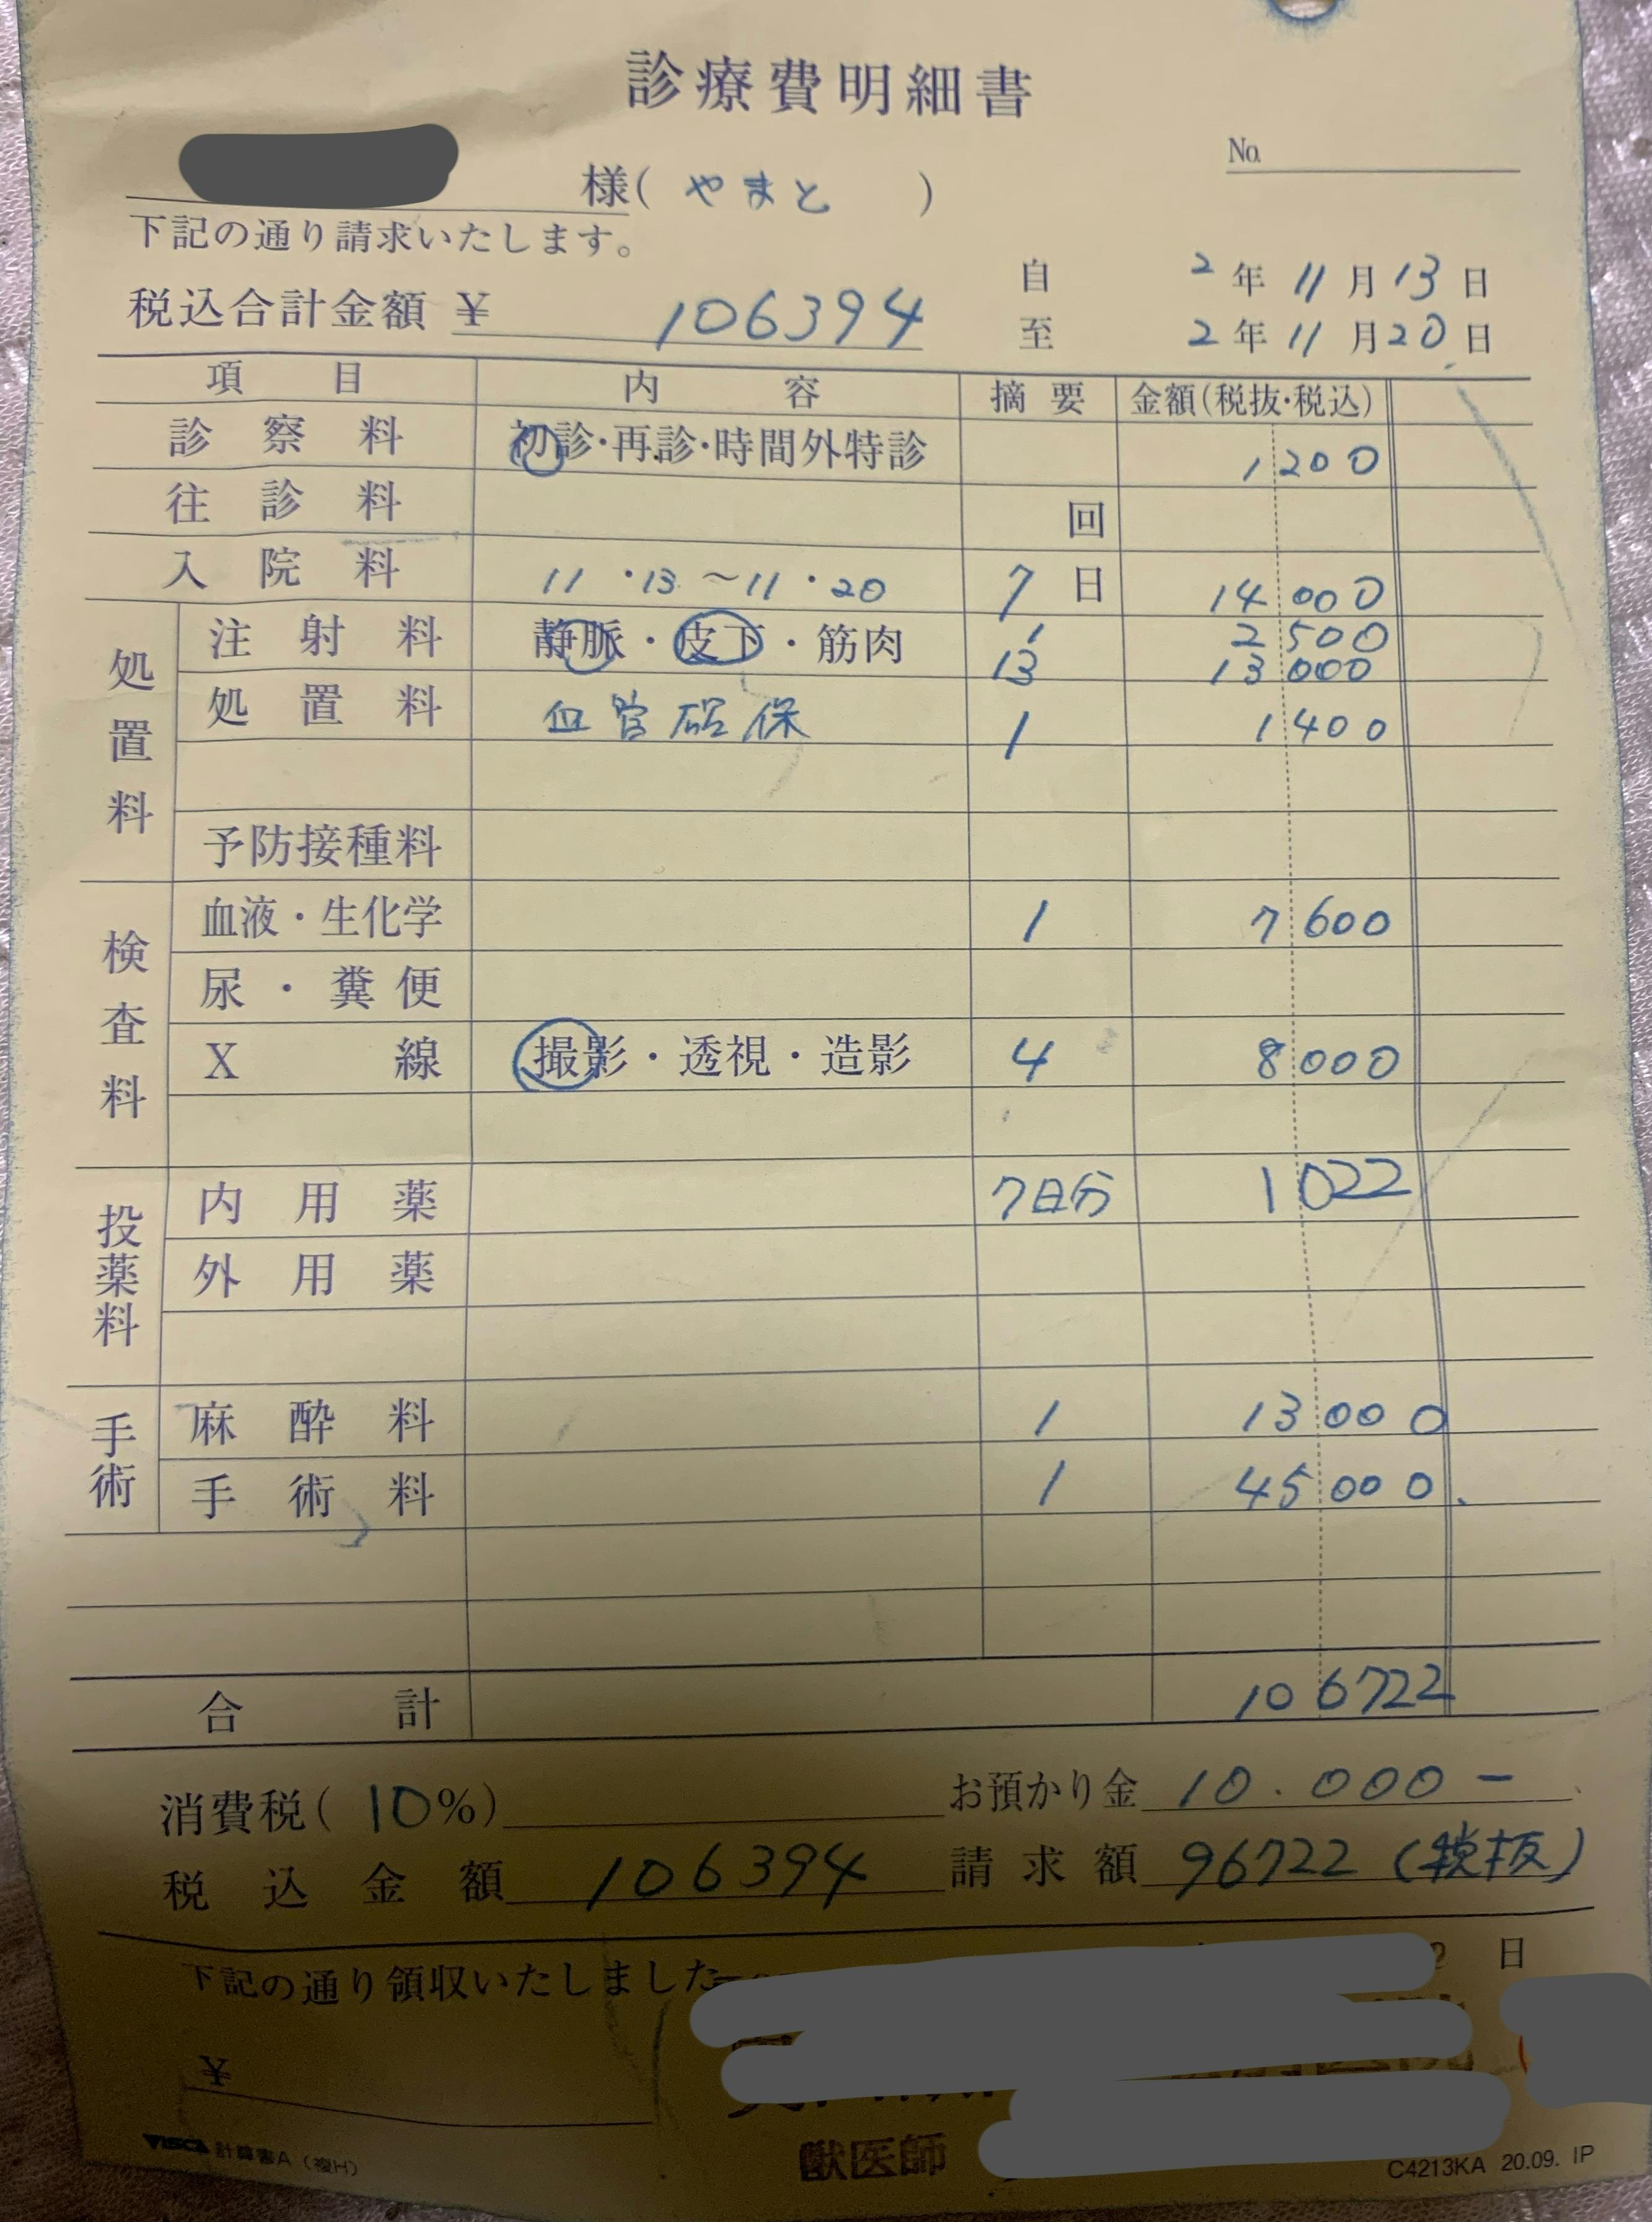 診療費明細書
No.
様(やまと)
下記の通り請求いたします。
自 2年11月13日
税込合計金額 ¥ 106394
至 2年11月20日
項目 内容 摘要 金額(税抜・税込)
診察料 初診・再診・時間外特診 1200
往診料 回
入院料 11・13〜11・20 7日 14000
処置料
注射料 静脈・皮下・筋肉 1 2500
13 13000
処置料 血管確保 1 1400
予防接種料
検査料
血液・生化学 1 7600
尿・糞便
X線 撮影・透視・造影 4 8000
投薬料
内用薬 7日分 1022
外用薬
手術
麻酔料 1 13000
手術料 1 45000
合計 106722
消費税(10%) お預かり金 10.000-
税込金額 106394 請求額 96722(税抜)
下記の通り領収いたしました
日
¥
獣医師
VISCA 計算書A(複H)
C4213KA 20.09. IP